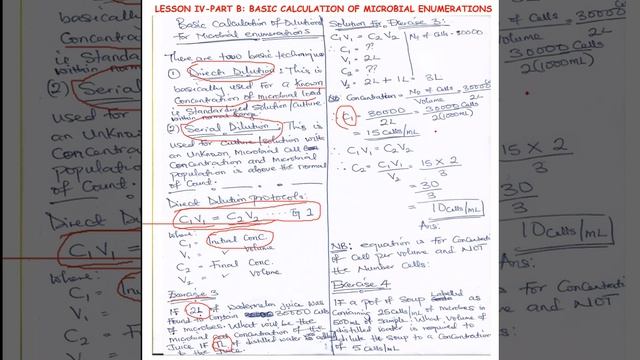 LESSON IV-PART B: BASIC CALCULATION OF MICROBIAL ENUMERATIONS
Basic Calculation of Dilutions
For Microbial enumerations
There are two basic technique
① Direct Dilution: This is
basically used for a known
Concentration of microbial load
in Standardized Solution/Culture
within normal
② Serial Dilution: This is
used for Culture/solution with
an Unknown, Microbial Cell
Concentration and Microbial
Population is above the normal
of Count.
Direct Dilution protocols:
C₁V₁ = C₂V₂ ---- Eq 1
Where:
C₁ = Initial Conc.
V₁ = " Volume
C₂ = Final Conc.
V₂ = " Volume
Exercise 3
If 2L of Watermelon juice was
found to contain 30000 Cells
of microbes. What will be the
microbial Concentration of the
Juice IF 1L of distilled water is added
to the juice
Solution For Exercise 3:
C₁V₁ = C₂V₂ | No of Cells = 30000
∴ C₁ = ??
V₁ = 2L
C₂ = ??
V₂ = 2L + 1L = 3L
Concentration = No of Cells / Volume = 30000 / 2L
C₁ = 30000 / 2L = 30000 Cells / 2(1000mL)
= 15 Cells/mL
∴ C₁V₁ = C₂V₂
∴ C₂ = C₁V₁ / V₂ = 15 × 2 / 3
= 30 / 3
= 10 Cells/mL
Ans:
NB: equation is for Concentration
of Cell per volume and NOT
the Number Cells.
Exercise 4
IF a pot of Soup Labelled as
Containing 25 Cells/mL of microbes in
500mL of Sample. What Volume of
distilled water is required to
dilute the Soup to a Concentration
of 5 Cells/mL